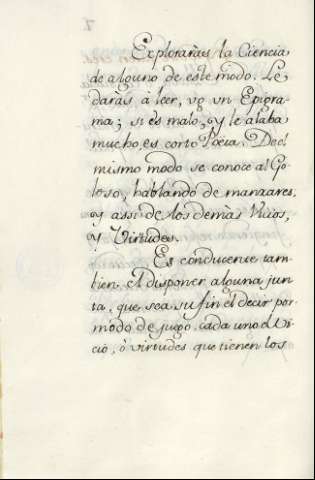 Explorarás la Ciencia
de alguno de este modo. Le
darás à leer, vg vn Epigra-
ma; si es malo, y le alaba
mucho, es corto Poëta. Del
mismo modo se conoce al Go-
loso, hablando de manxares,
y assi de los demàs Vicios,
y Virtudes.
Es conducente tam-
bien el disponer alguna jun
ta, que sea su fin el decir por
modo de juego, cada uno el vi
cio, ò virtudes que tienen los